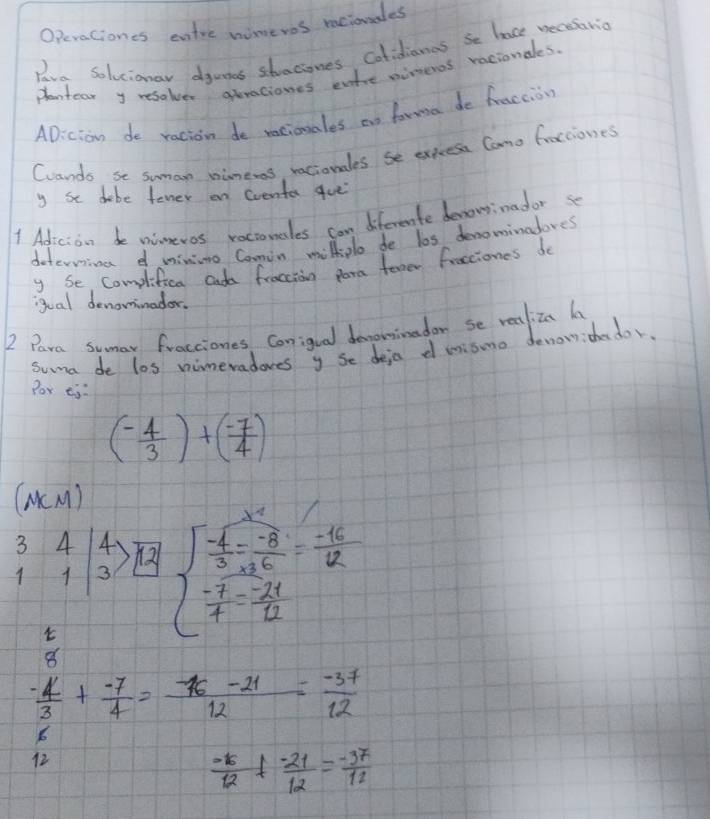 Operaciones entre números racionales
Para solucionar algunas situaciones cotidianas se hace necesario
plantear y resolver operaciones entre números racionales.
ADición de ración de racionales en forma de fracción
Cuando se suman números racionales se expresa como fracciones
y se debe tener en cuenta que:
1 Adición de números racionales con diferente denominador se
determina el mínimo común múltiplo de los denominadores
y se complifica cada fracción para tener fracciones de
igual denominador.
2 Para sumar fracciones con igual denominador se realiza la
suma de los númeradores y se deja el mismo denominador.
Por ej:
(-4/3) + (-7/4)
(MCM)
3 4 | 4 > 12
1 1 | 3
x2
-4/3 = -8/6 = -16/12
x3
-7/4 = -21/12
8
-4/3 + -7/4 = -16 -21/12 = -37/12
6
12
-16/12 + -21/12 = -37/12